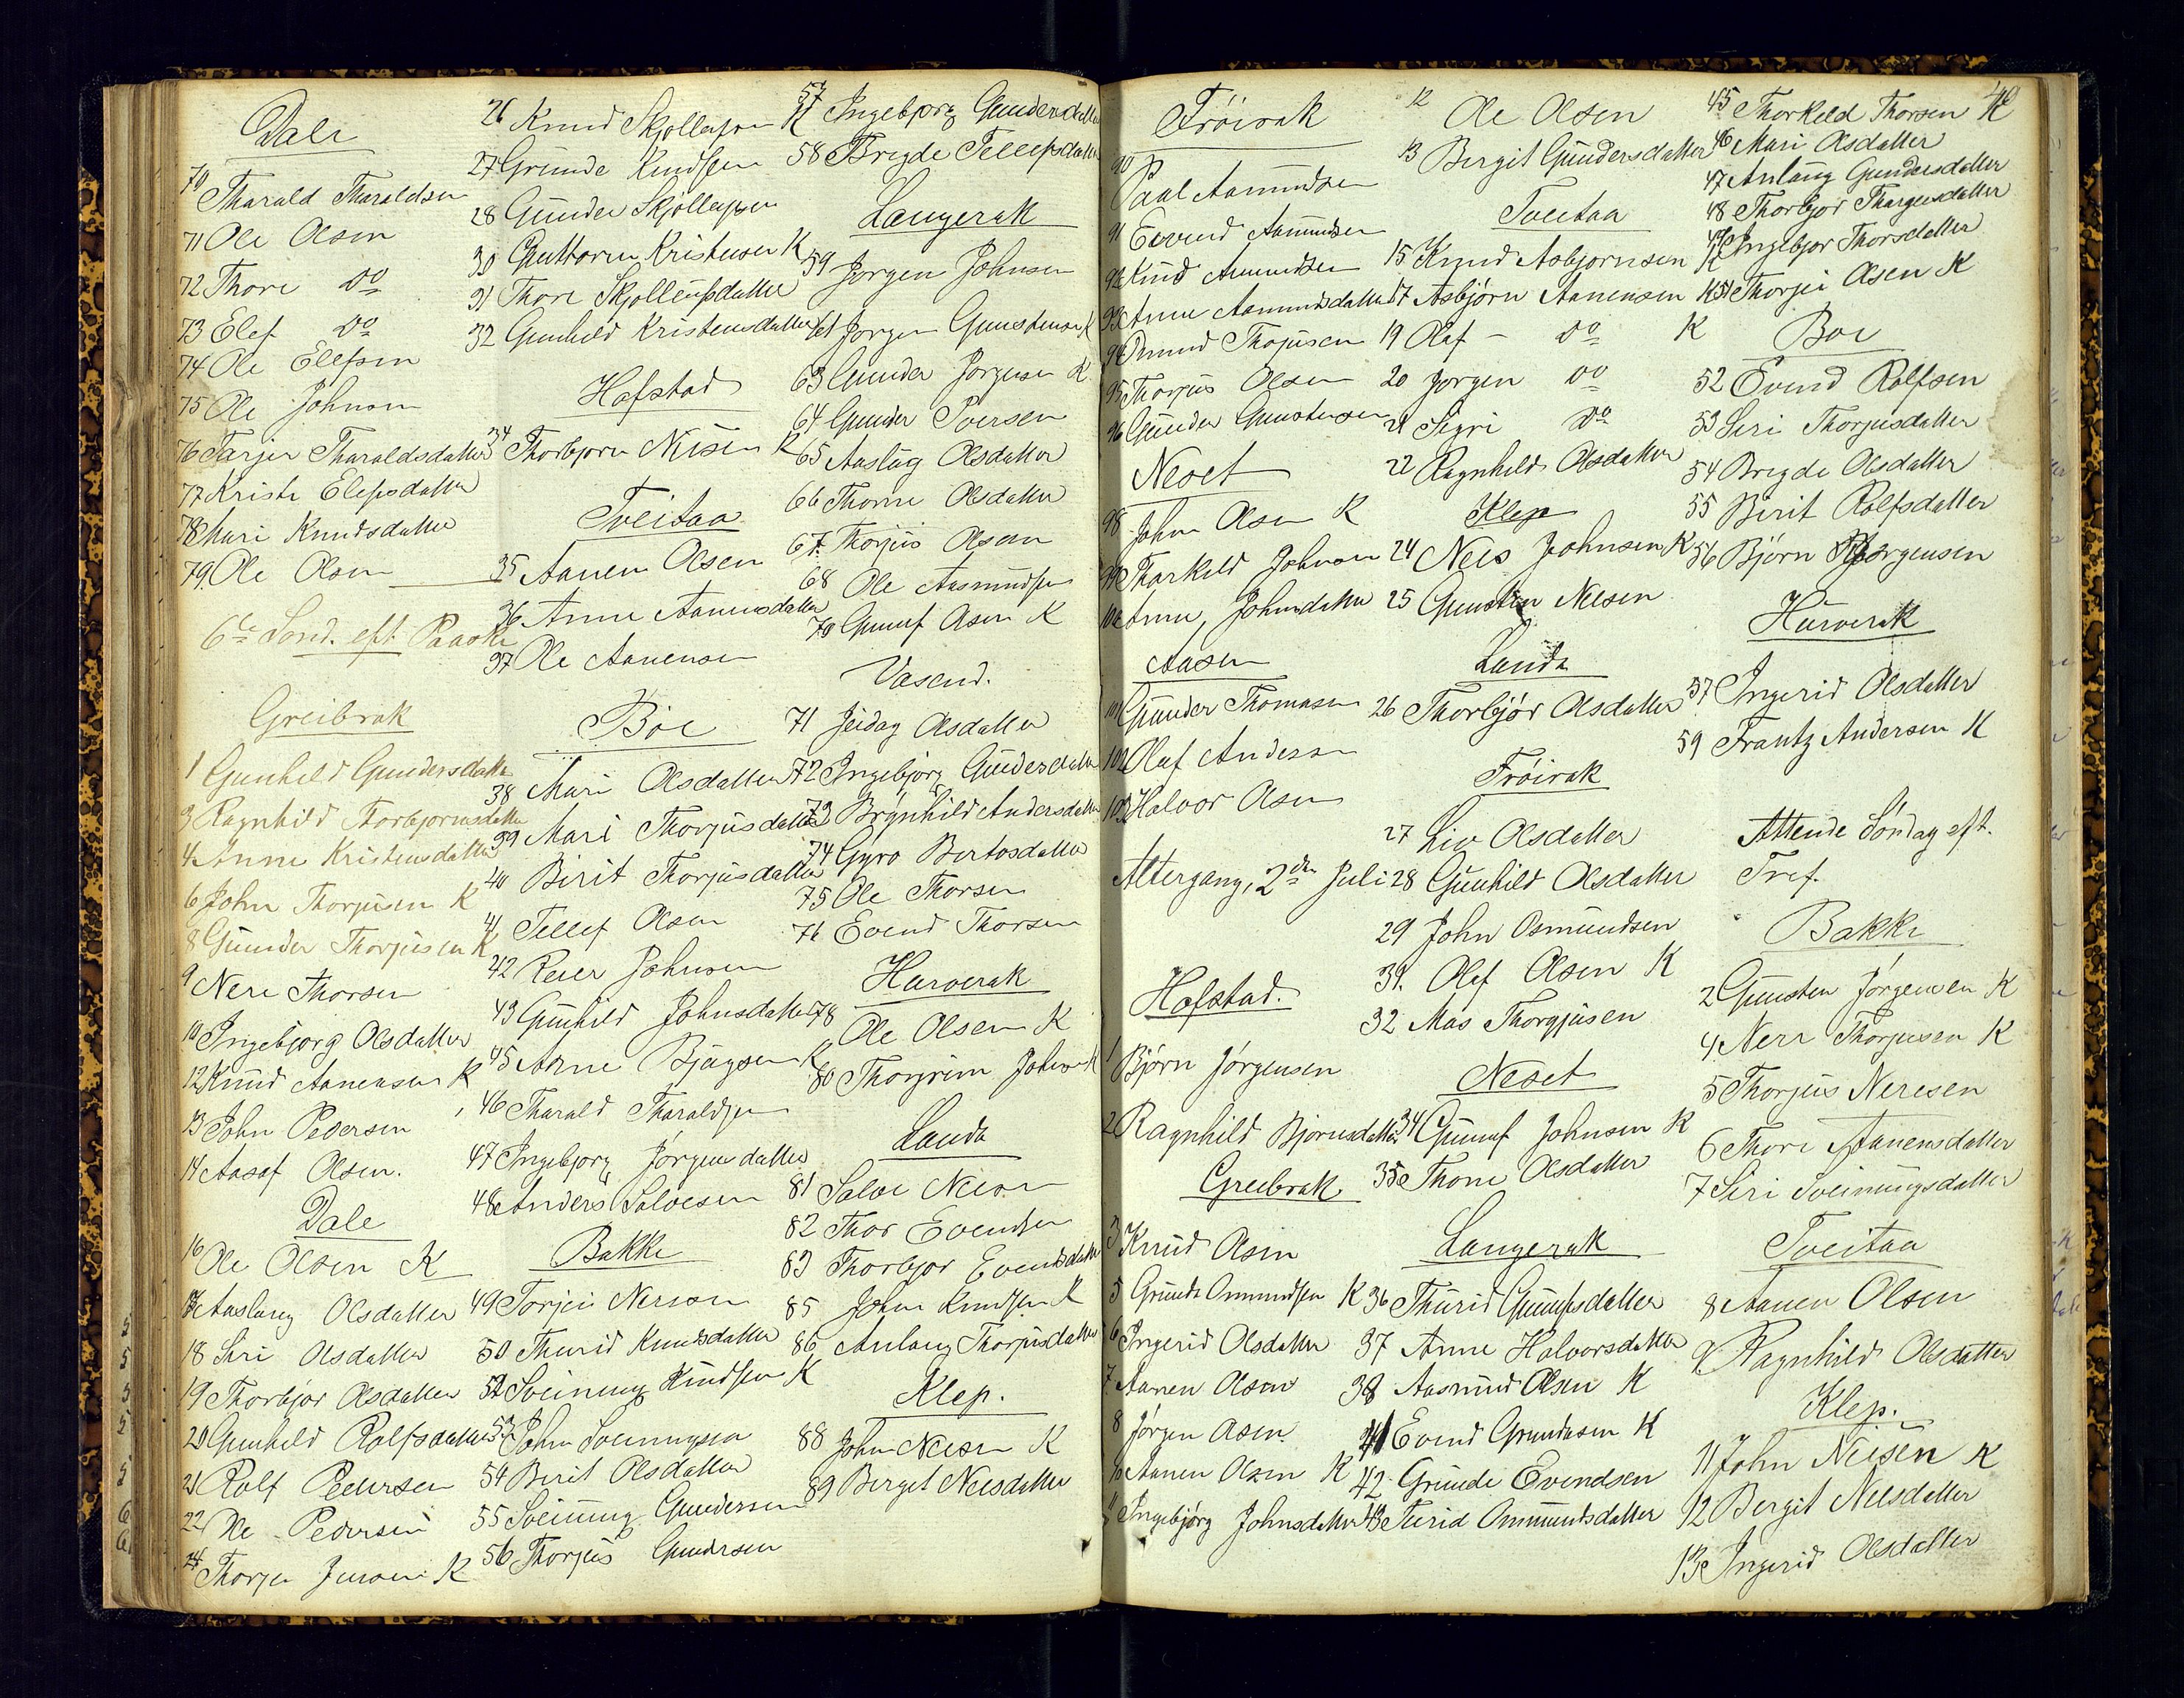 Dale
70 Tharald Tharaldsen
71 Ole Olsen
72 Thore do
73 Elef do
74 Ole Elefsen
75 Ole Johnsen
76 Tarjer Tharaldsdatter
77 Kristi Elefsdatter
78 Mari Knudsdatter
79. Ole Olsen
6te Sønd. eft Paaske
Greibrak
1 Gunhild Gundersdatter
3 Ragnhild Thorbjørnsdatter
4 Anne Kristensdatter
6 John Thorjusen K
8 Gunder Thorjusen K
9 Nere Thorsen
10 Ingebjørg Olsdatter
12 Knud Aanensen K
13 John Pedersen
14 Aasof Olsen.
Dale
16 Ole Olsen K
17 Aaslaug Olsdatter
18 Siri Olsdatter
19 Thorbjør Olsdatter
20 Gunhild Rolfsdatter
21 Rolf Pedersen
22 Ole Pedersen
24 Thorjer Jensen K
26 Knud Skjollefsen K
27 Grunde Knudsen
28 Gunder Skjollefsen
30 Guttorm Kristensen K
31 Thore Skjollefsdatter
32 Gunhild Kristensdatter
Hofstad
34 Thorbjørn Nilsen K
Tveitaa
35 Aanen Olsen
36 Anne Aanensdatter
37 Ole Aanensen
Bøe
38 Mari Olsdatter
39 Mari Thorjusdatter
40 Birit Thorjusdatter
41 Tellef Olsen
42 Reier Johnsen
43 Gunhild Johnsdatter
45 Arne Bjugsen K
46 Tharald Tharaldsen
47 Ingebjørg Jørgensdatter
48 Anders Salvesen
Bakke
49 Torjei Nerson
50 Thurid Knudsdatter
52 Sveinung Knudsen K
53 John Sveinungsen
54 Birit Olsdatter
55 Sveinung Gundersen
56 Thorjus Gundersen
57 Ingebjørg Gundersdatter
58 Bregde Tellefsdatter
Langerak
59 Jørgen Johnsen
61 Jørgen Gunstensen K
63 Gunder Jørgensen K
64 Gunder Iversen
65 Aaslaug Olsdatter
66 Thone Olsdatter
67. Thorjus Olsen
68 Ole Aasmundsen
70 Gunuf Olsen K
Vasend.
71 Jeidag Olsdatter
72 Ingebjørg Gundersdatter
73 Brynhild Andersdatter
74 Gyro Bertosdatter
75 Ole Thorsen
76 Evend Thorsen
Harverak
78 Ole Olsen K
80 Thorgrim Johnsen K
Landa
81 Salve Nelson
82 Thor Evendsen
83 Thorbjør Evendsdatter
85 John Knudsen K
86 Anlaug Thorjusdatter
Klep.
88 John Nelsen K
89 Berget Nelsdatter
40
Frøirak
90 Paal Aamundsen
91 Eivend Aamundsen
92 Knud Aamundsen
93 Anne Aamundsdatter
94 Omund Thojusen
95 Thorjus Olsen
96 Gunder Gunstensen
Neset
98 John Olsen K
99 Tharkild Johnson
100 Anne Johnsdatter
Aasen
101 Gunder Thomasen
102 Oluf Andersen
103 Halvor Olsen
Altergang, 2den Juli
Hofstad.
1 Bjørn Jørgensen
2 Ragnhild Bjørnsdatter
Greibrak
3 Knud Olsen
5 Grunde Ommundsen K
6 Ingerid Olsdatter
7. Aanen Olsen
8 Jørgen Olsen.
10 Aanen Olsen K
11 Ingebjørg Johnsdatter
12 Ole Olsen
13 Bergit Gundersdatter
Tveitaa
15 Knud Asbjørnsen K
17 Asbjørn Aanensen K
19 Olaf - do K
20 Jørgen do
21 Sigri do
22 Ragnhild Olsdatter
Klep
24 Nels Johnsen K
25 Gunsten Nelsen
Landa
26 Thorbjør Olsdatter
Frøirak
27 Liv Olsdatter
28 Gunhild Olsdatter
29 John Osmundsen
31. Olaf Olsen K
32 Mas Thorgjusen
Neset
34 Gunuf Johnsen K
35 Thone Olsdatter
Langerak
36 Thurid Gunufsdatter
37 Anne Halvorsdatter
38 Aasmund Olsen K
41 Evend Grundesen K
42. Grunde Evendsen
43 Turid Ommundsdatter
45 Thorkeld Thorsen K
46 Mari Olsdatter
47 Anlaug Gundersdatter
48 Thorbjør Thorgusdatter
49 Ingebjør Thorsdatter
51 Thorjei Olsen K
Boe
52 Evend Rolfsen
53 Siri Thorjusdatter
54 Bregde Olsdatter
55 Birit Rolfsdatter
56 Bjørn Jørgensen
Harverak
57 Ingerid Olsdatter
59 Frantz Andersen K
Attende Søndag eft.
Tref.
Bakke
2 Gunsten Jørgensen K
4 Nerr Thorjusen K
5 Thorjus Neresen
6 Thore Aanensdatter
7 Siri Sveinungsdatter
Tveitaa
8 Aanen Olsen
9 Ragnhild Olsdatter
Klep.
11 John Nelsen K
12 Bergit Nelsdatter
13 Ingerid Olsdatter